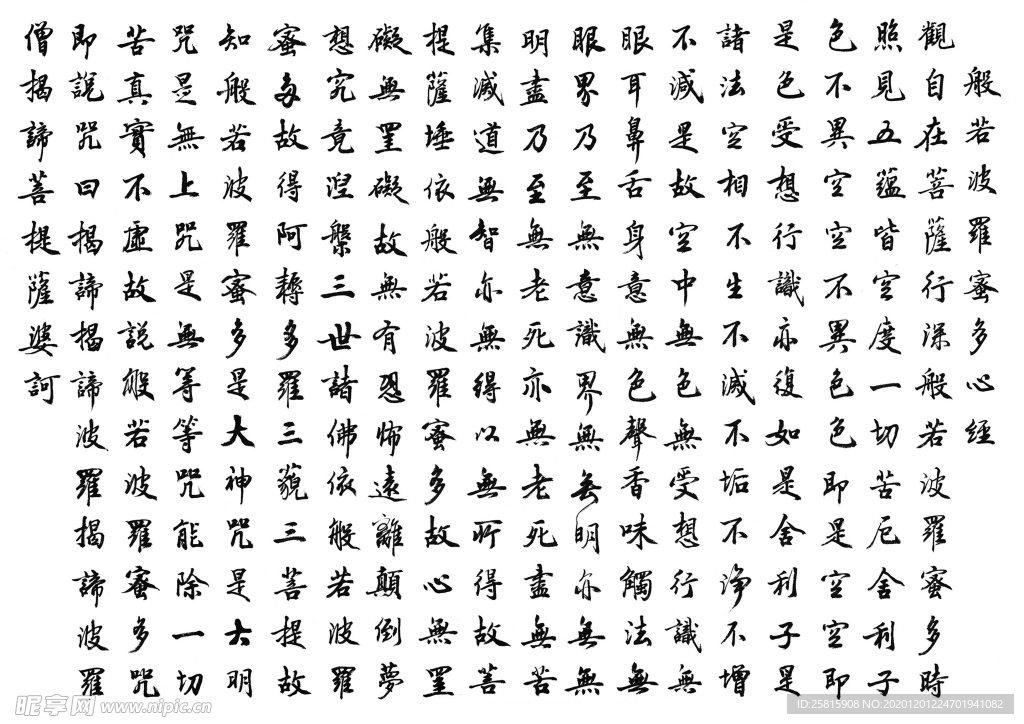 般若波羅蜜多心經
觀自在菩薩行深般若波羅蜜多時
照見五蘊皆空度一切苦厄舍利子
色不異空空不異色色即是空空即
是色受想行識亦復如是舍利子是
諸法空相不生不滅不垢不淨不增
不減是故空中無色無受想行識無
眼耳鼻舌身意無色聲香味觸法無
眼界乃至無意識界無無明亦無無
明盡乃至無老死亦無老死盡無苦
集滅道無智亦無得以無所得故菩
提薩埵依般若波羅蜜多故心無罣
礙無罣礙故無有恐怖遠離顛倒夢
想究竟涅槃三世諸佛依般若波羅
蜜多故得阿耨多羅三藐三菩提故
知般若波羅蜜多是大神咒是大明
咒是無上咒是無等等咒能除一切
苦真實不虛故說般若波羅蜜多咒
即說咒曰揭諦揭諦波羅揭諦波羅
僧揭諦菩提薩婆訶
昵享网 www.nipic.cn
ID:25815908 NO:20201201224701941082